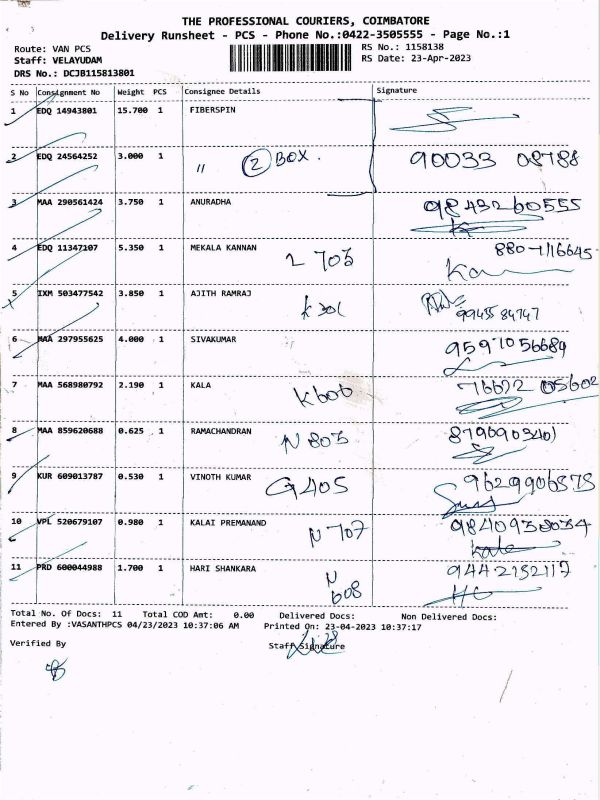 THE PROFESSIONAL COURIERS, COIMBATORE
Delivery Runsheet - PCS - Phone No.:0422-3505555 - Page No.:1
Route: VAN PCS RS No.: 1158138
Staff: VELAYUDAM RS Date: 23-Apr-2023
DRS No.: DCJB115813801
S No Consignment No Weight PCS Consignee Details Signature
1 EDQ 14943801 15.700 1 FIBERSPIN
2 EDQ 24564252 3.000 1 " 2 BOX. 90033 08788
3 MAA 290561424 3.750 1 ANURADHA 9843260555
4 EDQ 11347107 5.350 1 MEKALA KANNAN L 703
5 IXM 503477542 3.850 1 AJITH RAMRAJ K 301 99455 84747
6 MAA 297955625 4.000 1 SIVAKUMAR 9597056684
7 MAA 568980792 2.190 1 KALA K606 76622 05602
8 MAA 859620688 0.625 1 RAMACHANDRAN N 803 8790903401
9 KUR 609013787 0.530 1 VINOTH KUMAR G 405 9629906878
10 VPL 520679107 0.980 1 KALAI PREMANAND N 707 9840938034
11 PRD 600044988 1.700 1 HARI SHANKARA N 608 9442152117
Total No. Of Docs: 11 Total COD Amt: 0.00 Delivered Docs: Non Delivered Docs:
Entered By :VASANTHPCS 04/23/2023 10:37:06 AM Printed On: 23-04-2023 10:37:17
Verified By Staff Signature